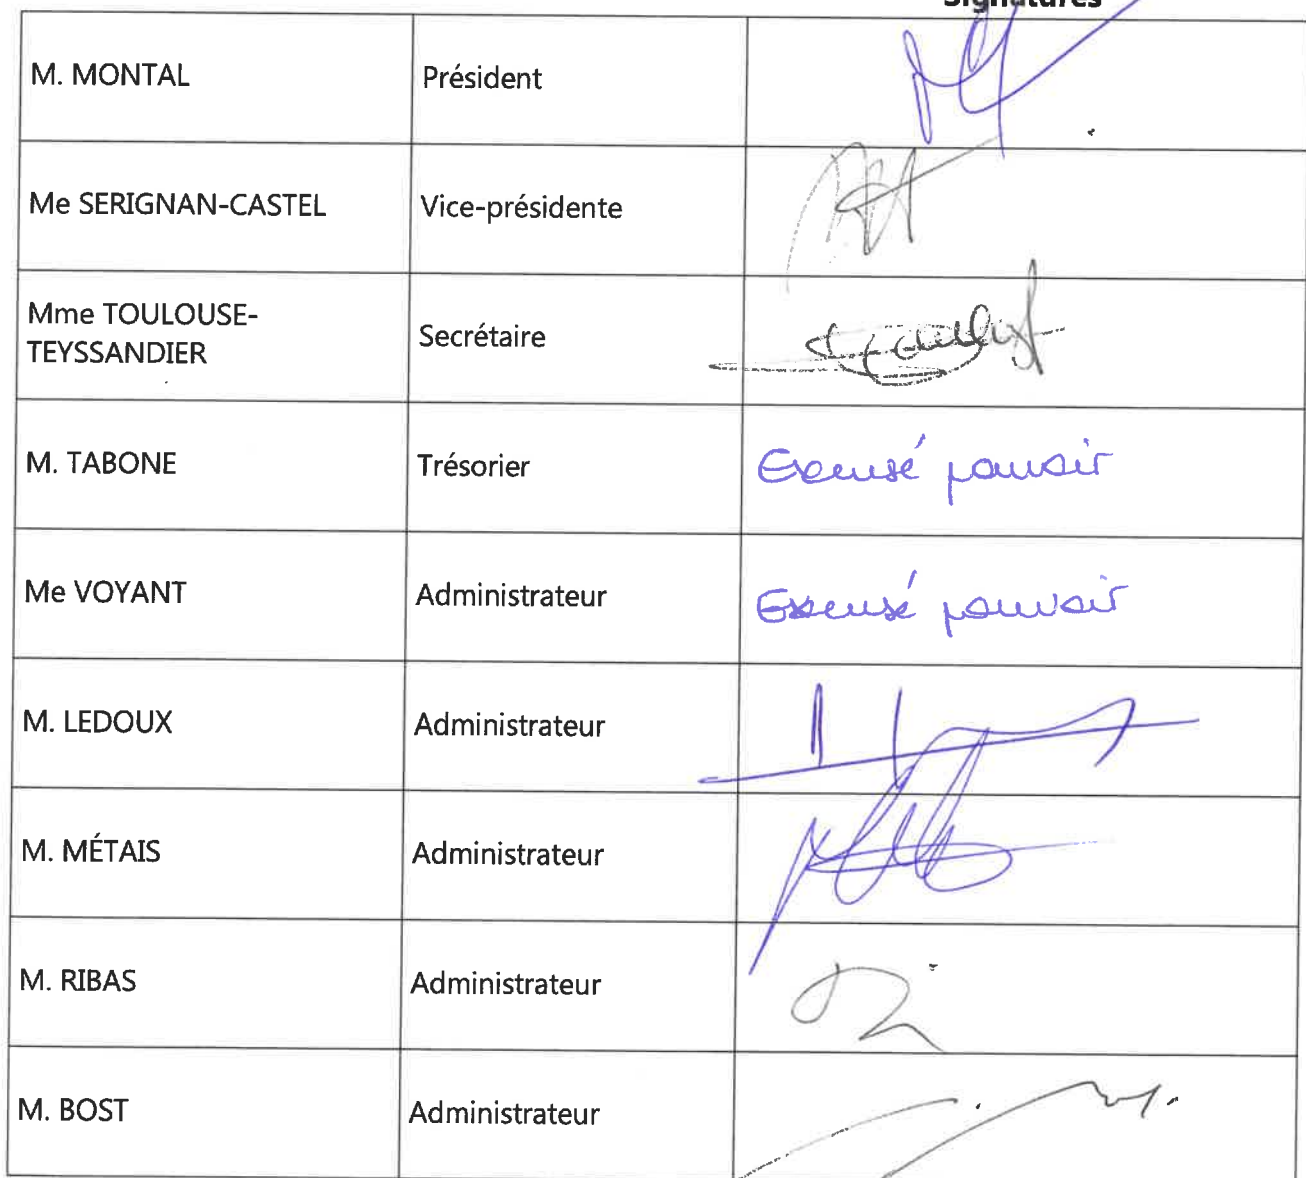 Signatures
M. MONTAL Président
Me SERIGNAN-CASTEL Vice-présidente
Mme TOULOUSE-
TEYSSANDIER Secrétaire
M. TABONE Trésorier Excusé pouvoir
Me VOYANT Administrateur Excusé pouvoir
M. LEDOUX Administrateur
M. MÉTAIS Administrateur
M. RIBAS Administrateur
M. BOST Administrateur